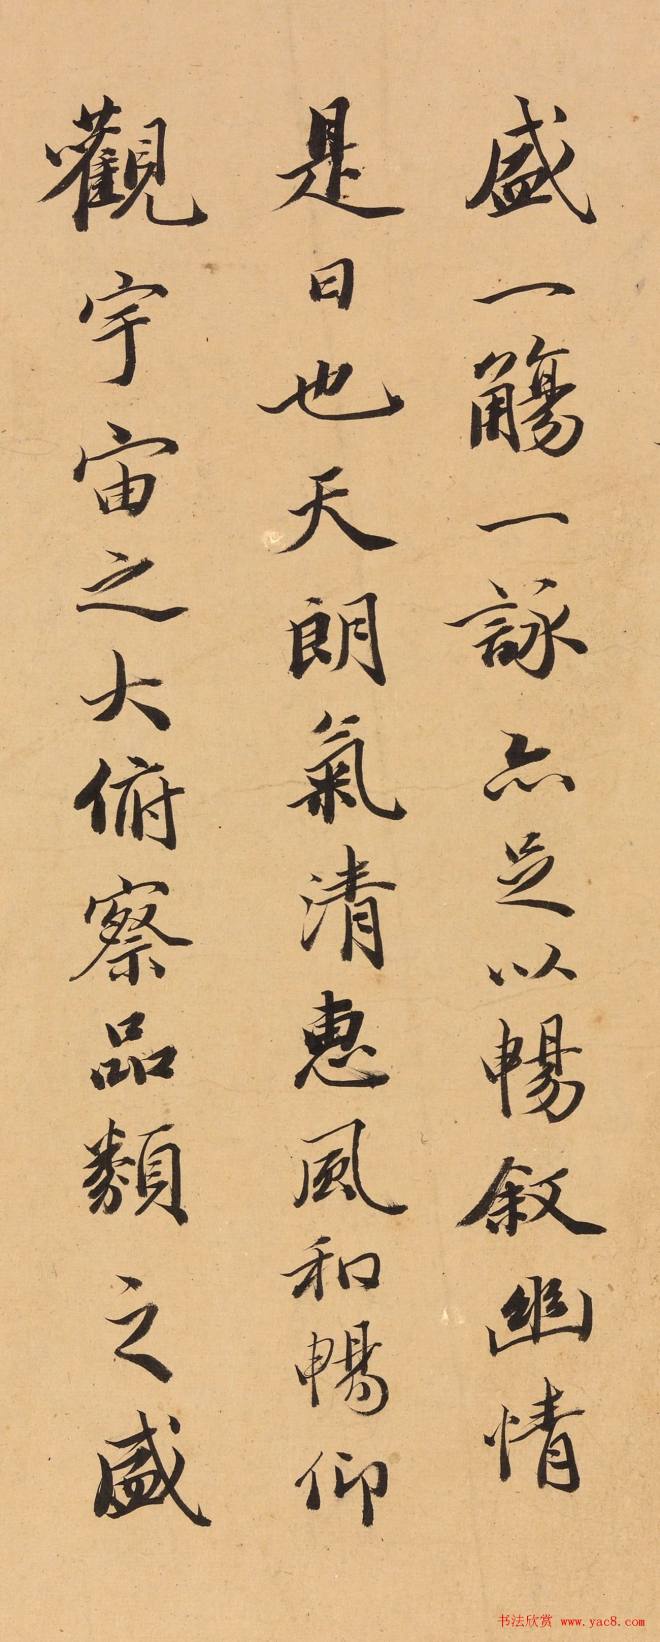 盛一觴一詠亦足以暢敘幽情
是日也天朗氣清惠風和暢仰
觀宇宙之大俯察品類之盛
书法欣赏 www.yac8.com